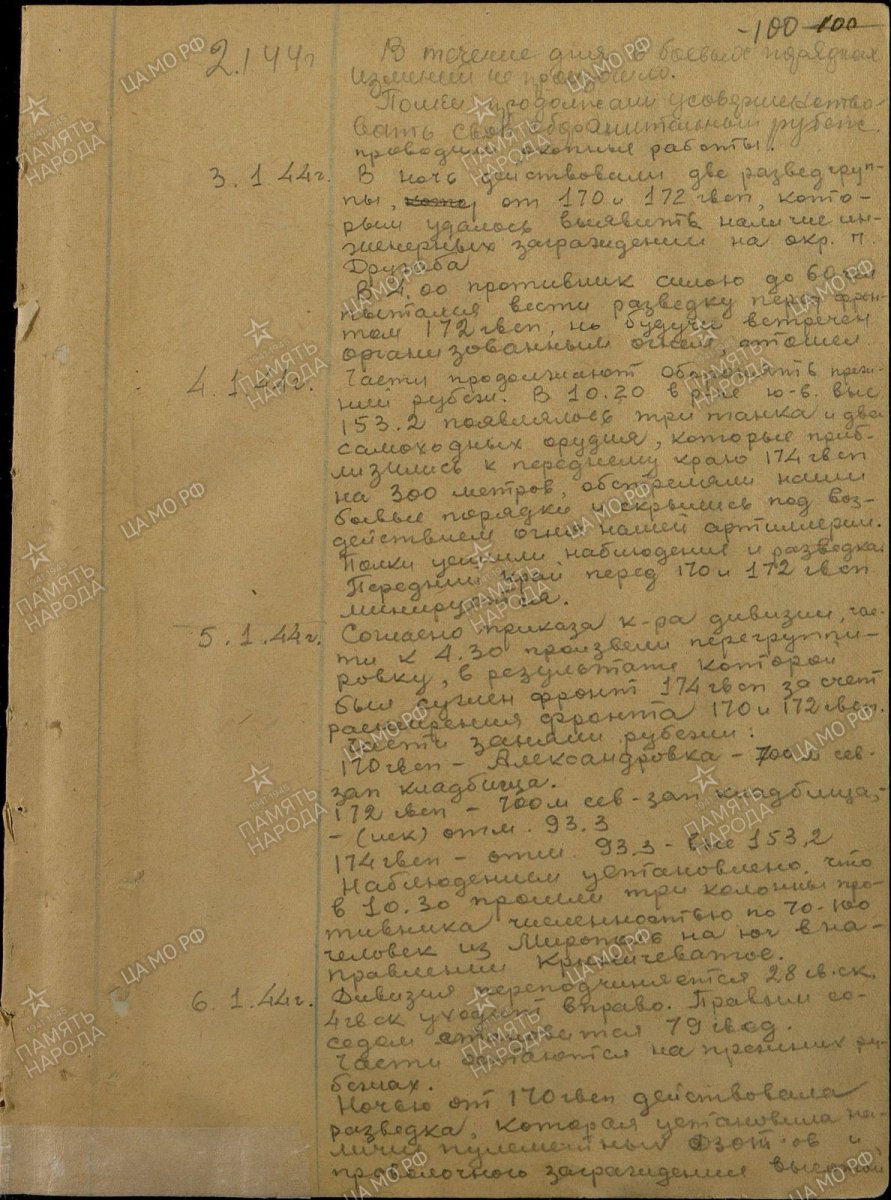 -100 100
2.1.44г В течение дня в боевых порядках
изменений не произошло.
Полки продолжали усовершенствово-
вать свой оборонительный рубеж.
проводили окопные работы.
3.1.44г. В ночь действовали две разведгруп-
пы, от 170 и 172 гвсп, кото-
рым удалось выявить наличие ин-
женерных заграждений на окр. п.
Дружба
В 4.00 противник силою до 60 чел
пытался вести разведку перед фрон-
том 172 гвсп, но будучи встречен
организованным огнем, отошел.
4.1.44г. Части продолжают оборонять преж-
ний рубеж. В 10.20 в р-не ю-в. выс
153.2 появлялось три танка и два
самоходных орудия, которые приб-
лизились к переднему краю 174 гвсп
на 300 метров, обстреляли наши
боевые порядки и скрылись под воз-
действием огня нашей артиллерии.
Полки усилили наблюдение и разведка.
Передний край перед 170 и 172 гвсп
минируется.
5.1.44г. Согласно приказа к-ра дивизии, час-
ти к 4.30 произвели перегруппи-
ровку, в результате которой
был сужен фронт 174 гвсп за счет
расширения фронта 170 и 172 гвсп.
Части заняли рубежи:
170 гвсп - Александровка - 700м сев-
зап кладбища.
172 гвсп - 700м сев-зап кладбища,-
- (иск) отм. 93.3
174 гвсп - отм. 93.3 - вне 153,2
Наблюдением установлено, что
в 10.30 прошли три колонны про-
тивника численностью по 70-100
человек из Мирополь на юг в на-
правлении Криничеватое.
6.1.44г. Дивизия переподчиняется 28 гв.ск.
4 гвск уходит вправо. Правым со-
седом становится 79 гвсд.
Части остаются на прежних ру-
бежах.
Ночью от 170 гвсп действовала
разведка, которая установила на-
личие пулеметных Дзот-ов и
проволочного заграждения высотой
ЦА МО РФ
ЦА МО РФ
ЦА МО РФ
1941-1945
ПАМЯТЬ
НАРОДА
1941-1945
ПАМЯТЬ
НАРОДА
1941-1945
ПАМЯТЬ
НАРОДА